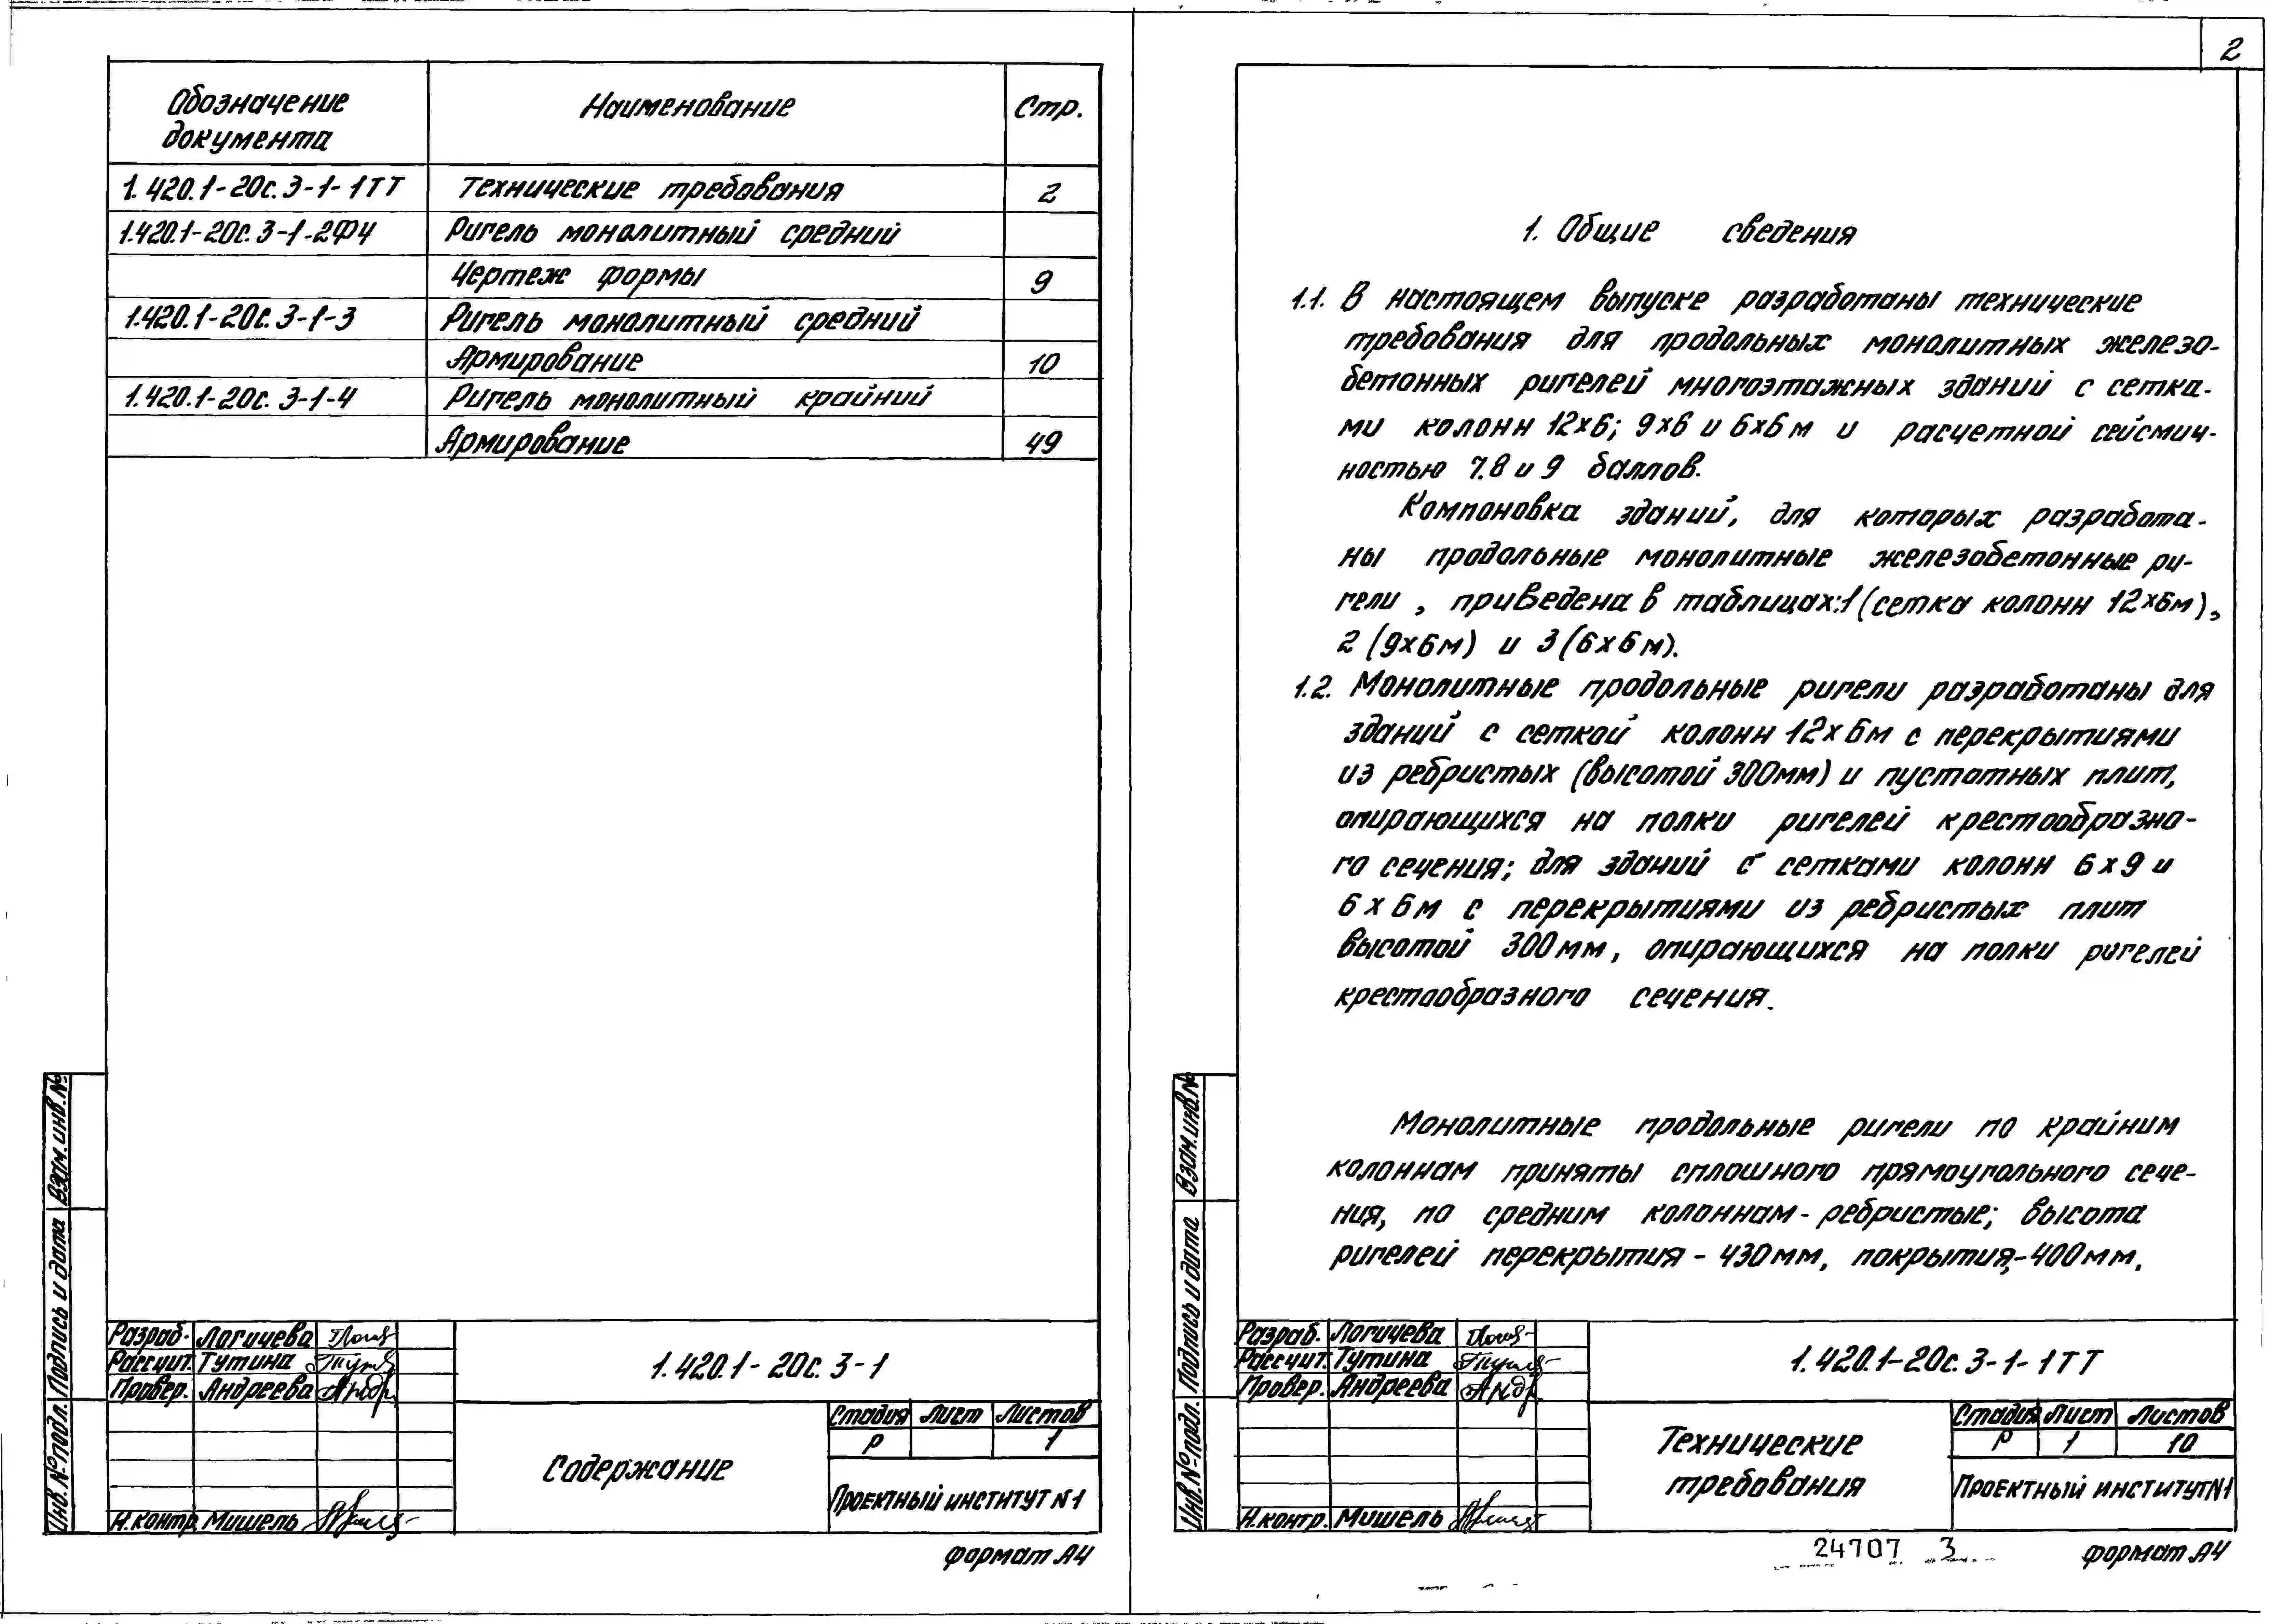 Обозначение документа Наименование Стр.
1.420.1-20с.3-1-1ТТ Технические требования 2
1.420.1-20с.3-1-2ФЧ Ригель монолитный средний
Чертеж формы 9
1.420.1-20с.3-1-3 Ригель монолитный средний
Армирование 10
1.420.1-20с.3-1-4 Ригель монолитный крайний
Армирование 49
Взам.инв.№
Подпись и дата
Инв.№подл.
Разраб. Логичева
Рассчит. Тутина
Провер. Андреева
Н.контр. Мишель
1.420.1-20с.3-1
Содержание
Стадия Лист Листов
Р 1
Проектный институт №1
формат А4
2
1. Общие сведения
1.1. В настоящем выпуске разработаны технические
требования для продольных монолитных железо-
бетонных ригелей многоэтажных зданий с сетка-
ми колонн 12х6; 9х6 и 6х6м и расчетной сейсмич-
ностью 7.8 и 9 баллов.
Компоновка зданий, для которых разработа-
ны продольные монолитные железобетонные ри-
гели, приведена в таблицах:1(сетка колонн 12х6м),
2 (9х6м) и 3(6х6м).
1.2. Монолитные продольные ригели разработаны для
зданий с сеткой колонн 12х6м с перекрытиями
из ребристых (высотой 300мм) и пустотных плит,
опирающихся на полки ригелей крестообразно-
го сечения; для зданий с сетками колонн 6х9 и
6х6м с перекрытиями из ребристых плит
высотой 300мм, опирающихся на полки ригелей
крестообразного сечения.
Монолитные продольные ригели по крайним
колоннам приняты сплошного прямоугольного сече-
ния, по средним колоннам - ребристые; высота
ригелей перекрытия - 430мм, покрытия,-400мм.
Взам.инв.№
Подпись и дата
Инв.№подл.
Разраб. Логичева
Рассчит. Тутина
Провер. Андреева
Н.контр. Мишель
1.420.1-20с.3-1-1ТТ
Технические
требования
Стадия Лист Листов
Р 1 10
Проектный институт№1
24707 3
формат А4